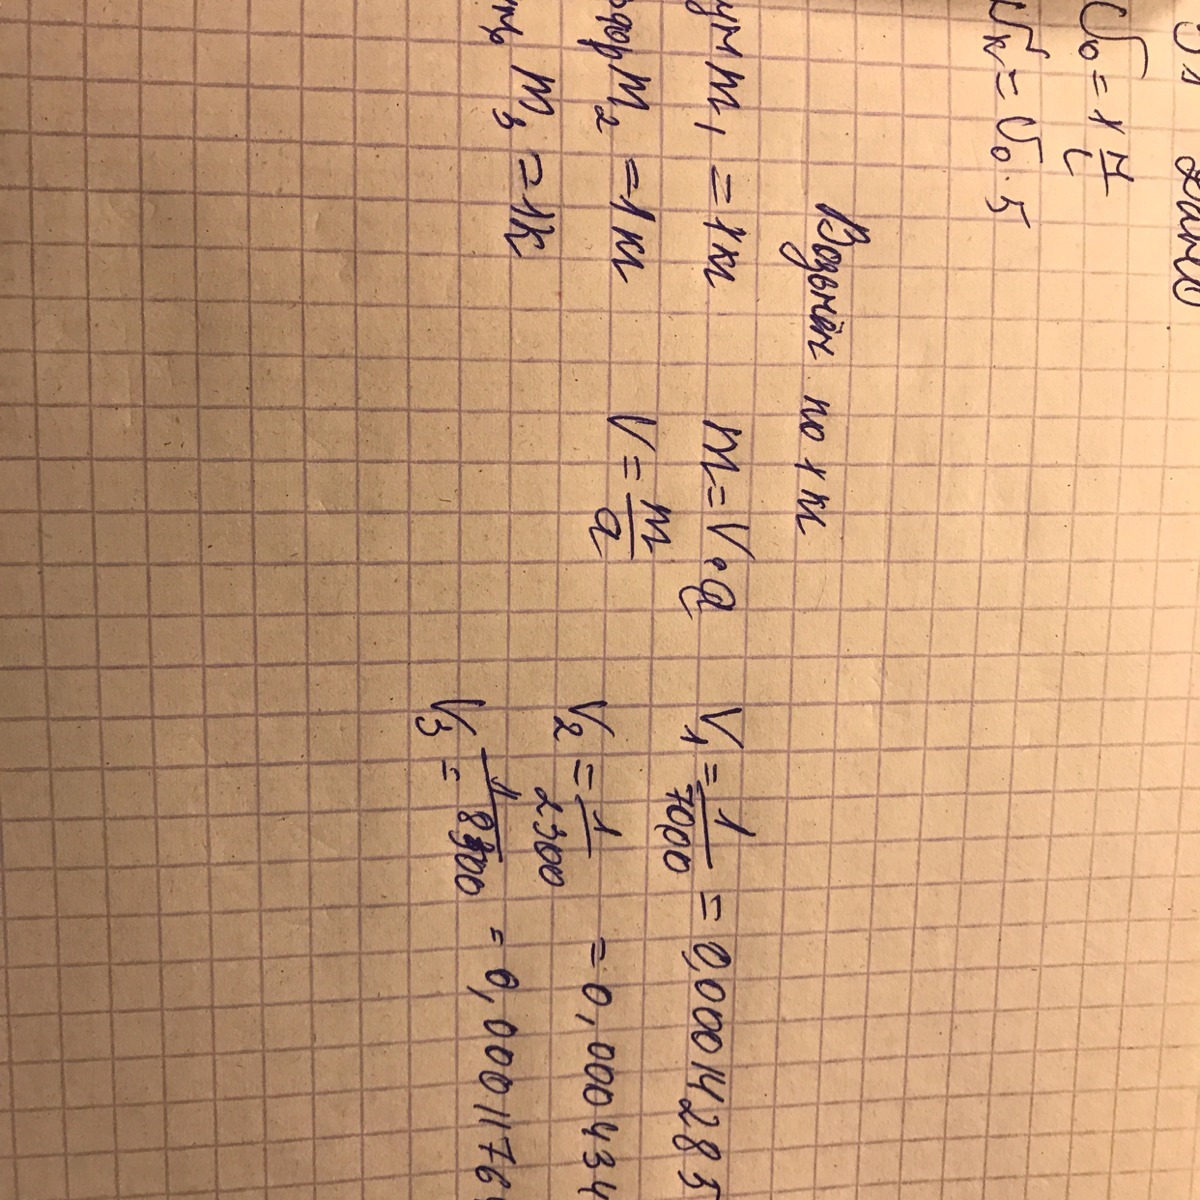 дано
V₀ = 1 м/с
Vк = V₀ · 5
Возьмём по 1 кг
m₁ = 1 кг
m = V · ρ
V₁ = 1/7000 = 0,00014285
m₂ = 1 кг
V = m/ρ
V₂ = 1/2300 = 0,000434
m₃ = 1к
V₃ = 1/8500 = 0,0001176